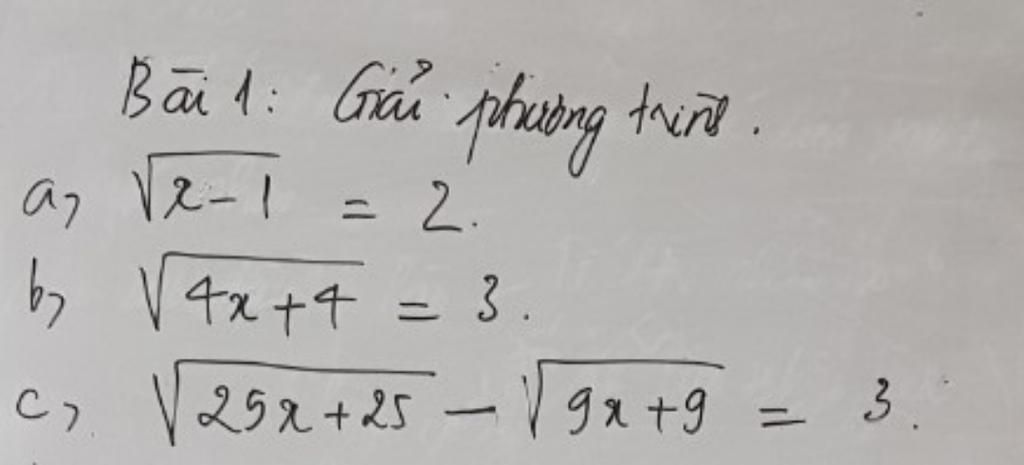 Bài 1: Giải phương trình.
a, √(x-1) = 2.
b, √(4x+4) = 3.
c, √(25x+25) - √(9x+9) = 3.